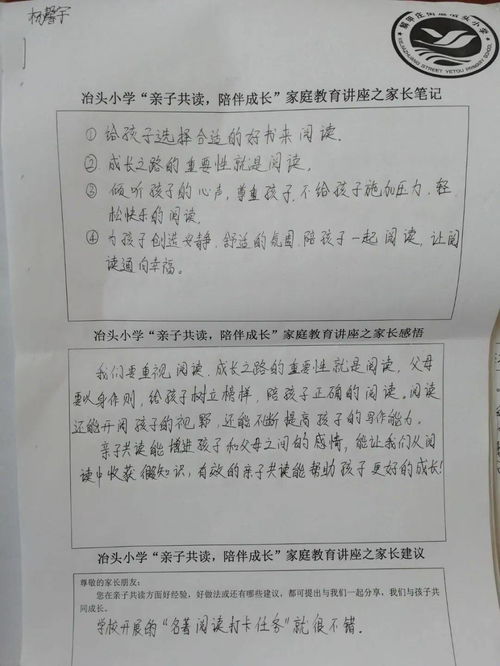 杨馨宇
解甲庄街道冶头小学
XIEJIAZHUANG STREET YETOU PRIMARY SCHOOL
冶头小学“亲子共读，陪伴成长”家庭教育讲座之家长笔记
① 给孩子选择合适的好书来阅读.
② 成长之路的重要性就是阅读.
③ 倾听孩子的心声，尊重孩子，不给孩子施加压力、轻
松快乐的阅读。
④ 为孩子创造安静、舒适的氛围，陪孩子一起阅读，让阅
读通向幸福。
冶头小学“亲子共读，陪伴成长”家庭教育讲座之家长感悟
我们要重视阅读，成长之路的重要性就是阅读，父母
要以身作则，给孩子树立榜样，陪孩子正确的阅读。阅读
还能开阔孩子的视野，还能不断提高孩子的写作能力。
亲子共读能增进孩子和父母之间的感情，能让我们从阅
读中收获知识，有效的亲子共读能帮助孩子更好的成长！
冶头小学“亲子共读，陪伴成长”家庭教育讲座之家长建议
尊敬的家长朋友：
您在亲子共读方面好经验，好做法或还有哪些建议，都可提出与我们一起分享，我们与孩子共
同成长。
学校开展的“名著阅读打卡任务”就很不错.